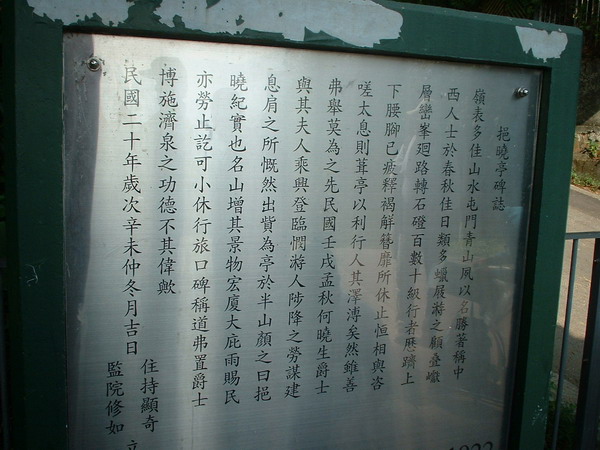 挹曉亭碑誌
嶺表多佳山水屯門青山夙以名勝著稱中
西人士於春秋佳日類多蠟屐游之顧叠巘
層巒峯廻路轉石磴百數十級行者歷躋上
下腰腳已疲釋褐解簪靡所休止恒相與咨
嗟太息則葺亭以利行人其澤溥矣然雖善
弗舉莫為之先民國壬戌孟秋何曉生爵士
與其夫人乘興登臨憫游人陟降之勞謀建
息肩之所慨然出貲為亭於半山顏之曰挹
曉紀實也名山增其景物宏廈大庇雨賜民
亦勞止訖可小休行旅口碑稱道弗置爵士
博施濟泉之功德不其偉歟
民國二十年歲次辛未仲冬月吉日
住持顯奇
監院修如